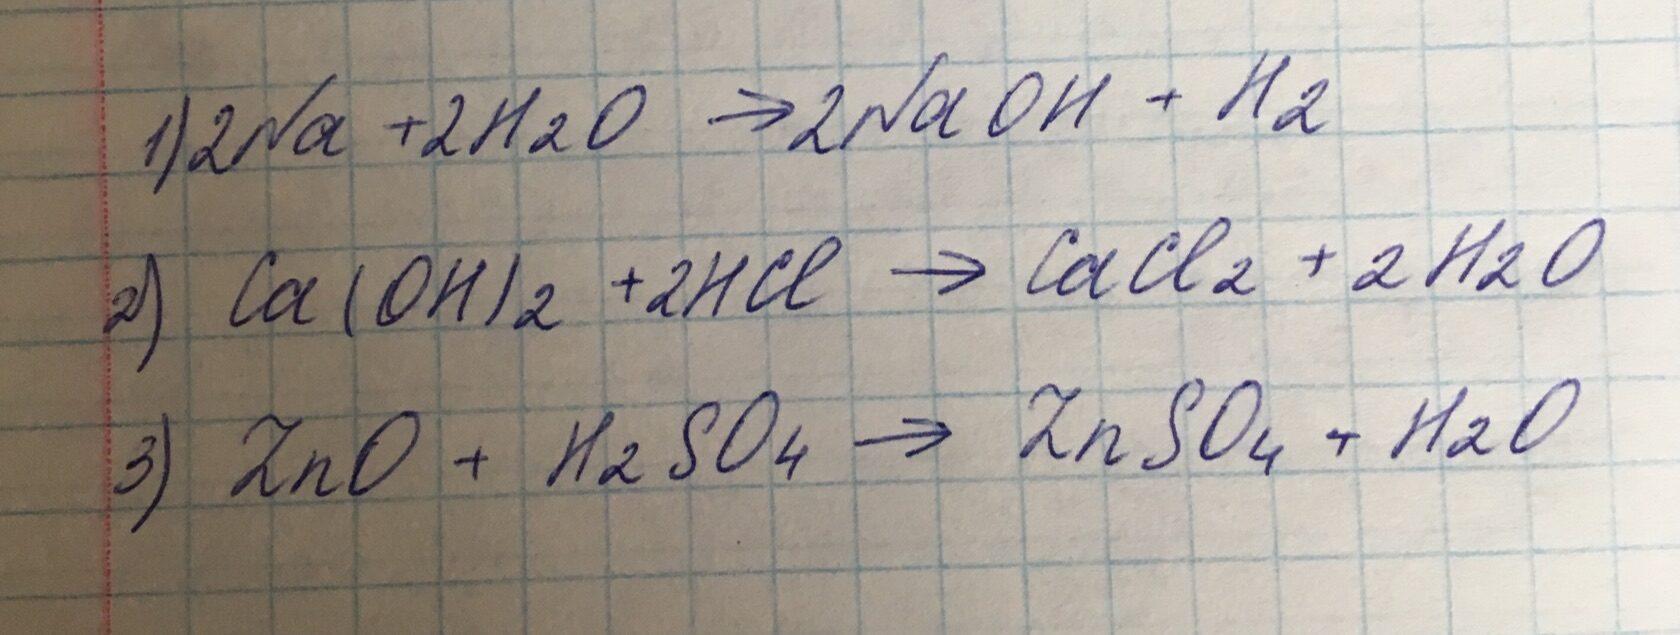 1) 2Na + 2H2O → 2NaOH + H2
2) Ca(OH)2 + 2HCl → CaCl2 + 2H2O
3) ZnO + H2SO4 → ZnSO4 + H2O